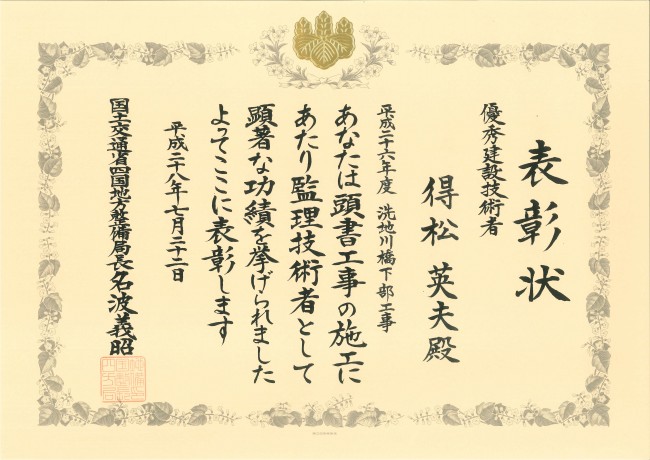 表彰状
優秀建設技術者
得松 英夫殿
平成二十六年度 洗地川橋下部工事
あなたは頭書工事の施工に
あたり監理技術者として
顕著な功績を挙げられました
よってここに表彰します
平成二十八年七月二十二日
国土交通省四国地方整備局長名波義昭